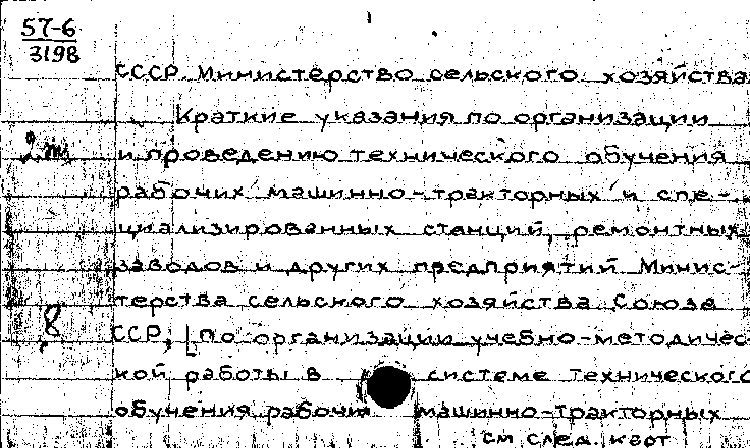 57-6
3198
СССР. Министерство сельского хозяйства
Краткие указания по организации
и проведению технического обучения
рабочих машинно-тракторных и спе-
циализированных станций, ремонтных
заводов и других предприятий Минис-
терства сельского хозяйства Союза
ССР, По организации учебно-методичес-
кой работы в системе технического
обучения рабочих машинно-тракторных
см след. карт
8